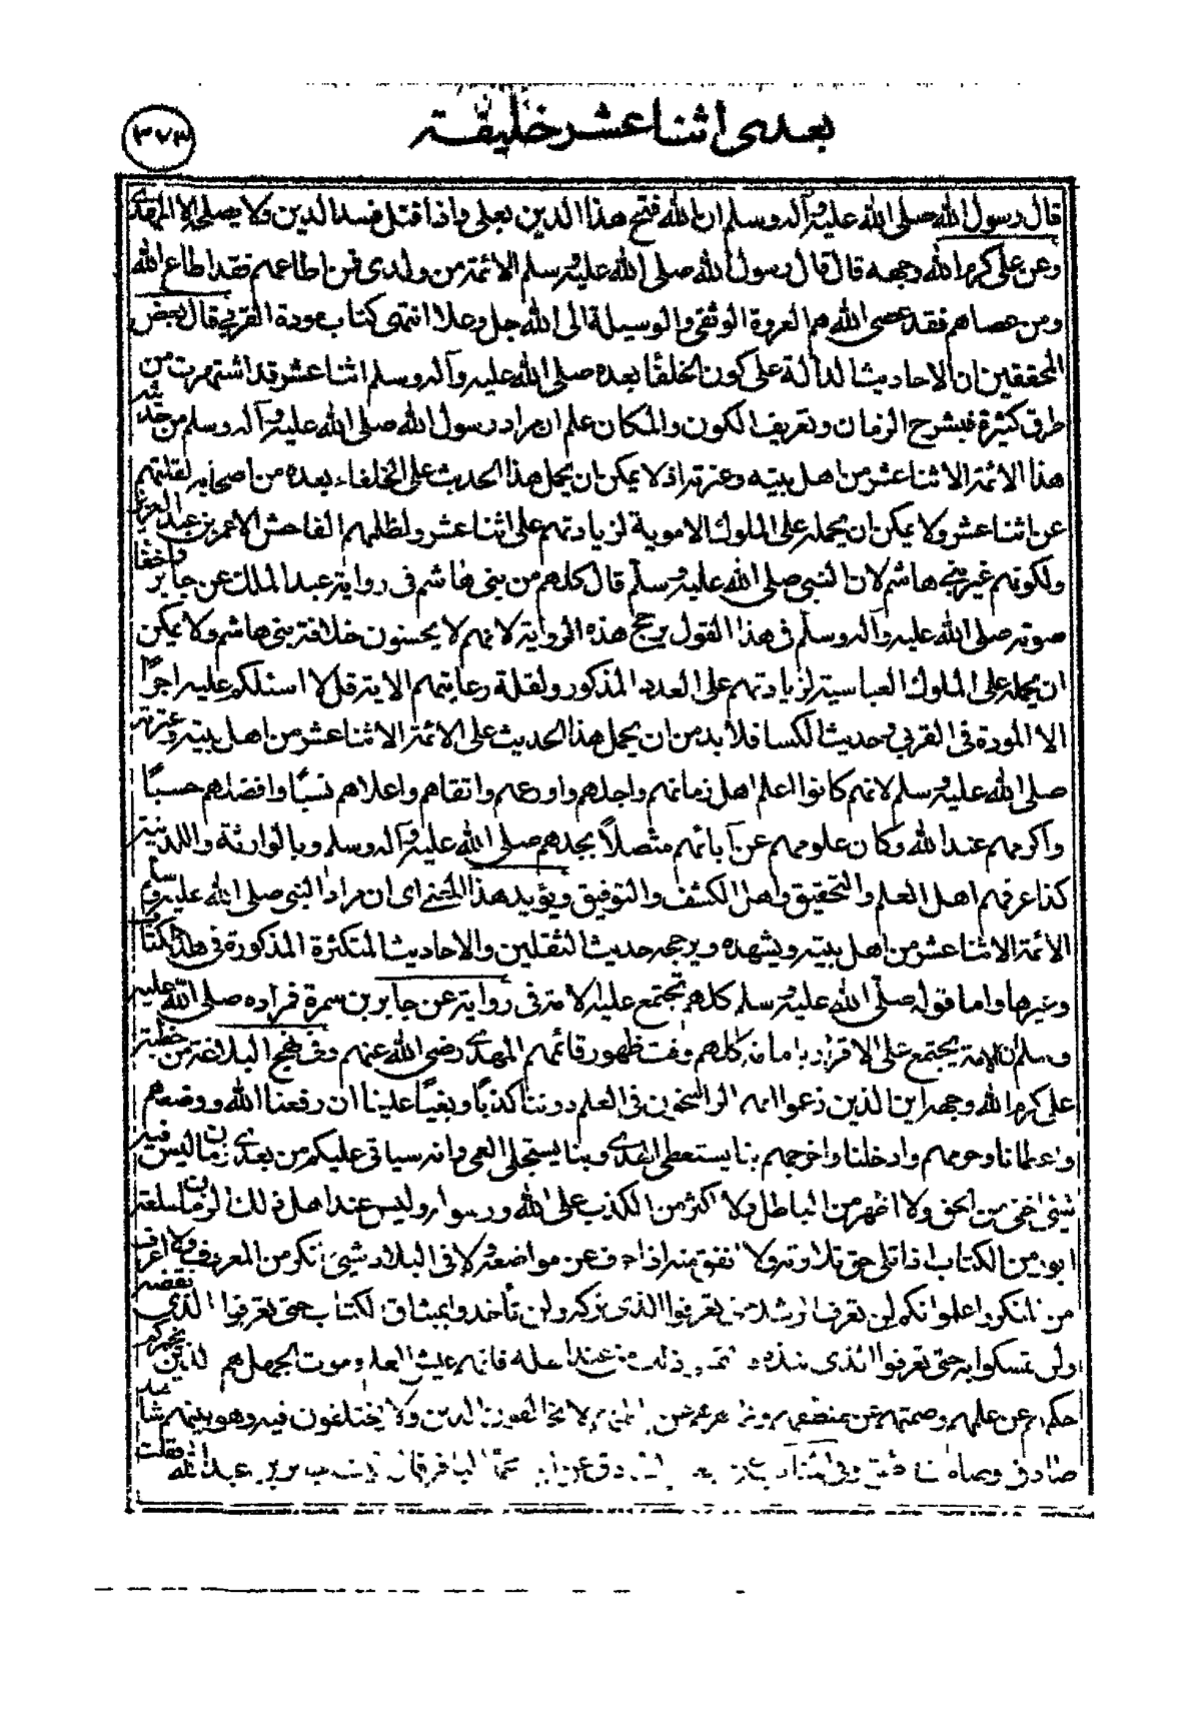 بعدی اثنا عشر خلیفة
٣٧٣
قال رسول الله صلی الله علیه و آله وسلم ان الله فتح هذا الدین بعلی واذا قتل فسد الدین ولا یصلحه الا المهدی
وعن علی کرم الله وجهه قال قال رسول الله صلی الله علیه و سلم الائمة من ولدی فمن اطاعهم فقد اطاع الله
ومن عصاهم فقد عصی الله هم العروة الوثقی والوسیلة الی الله جل وعلا انتهی کتاب مودة القربی قال بعض
المحققین ان الاحادیث الدالة علی کون الخلفا بعده صلی الله علیه وآله وسلم اثنا عشر قد اشتهرت من
طرق کثیرة فبشرح الزمان وتعریف الکون والمکان علم ان مراد رسول الله صلی الله علیه و آله وسلم من حدیثه
هذا الائمة الاثنا عشر من اهل بیته وعترته اذ لا یمکن ان یحمل هذا الحدیث علی الخلفاء بعده من اصحابه لقلتهم
عن اثنا عشر ولا یمکن ان یحمله علی الملوک الامویة لزیادتهم علی اثنا عشر ولظلمهم الفاحش الا عمر بن عبد العزیز
ولکونهم غیر بنی هاشم لان النبی صلی الله علیه و سلم قال کلهم من بنی هاشم فی روایة عبد الملک عن جابر واخفا
صوته صلی الله علیه وآله وسلم فی هذا القول یرجح هذه الروایة لانهم لا یحسنون خلافة بنی هاشم ولا یمکن
ان یحمله علی الملوک العباسیة لزیادتهم علی العدد المذکور ولقلة رعایتهم الایة قل لا اسئلکم علیه اجرًا
الا المودة فی القربی وحدیث الکسا فلا بد من ان یحمل هذا الحدیث علی الائمة الاثنا عشر من اهل بیته وعترته
صلی الله علیه و سلم لانهم کانوا اعلم اهل زمانهم واجلهم واورعهم واتقاهم واعلاهم نسبًا وافضلهم حسبًا
واکرمهم عند الله وکان علومهم عن آبائهم متصلاً بجدهم صلی الله علیه و آله وسلم وبالوراثة واللدنیة
کذا عرفهم اهل العلم والتحقیق واهل الکشف والتوفیق ویؤید هذا المعنی ای ان مراد النبی صلی الله علیه و سلم
الائمة الاثنا عشر من اهل بیته ویشهده ویرجحه حدیث الثقلین والاحادیث المتکثرة المذکورة فی هذا الکتاب
وغیرها واما قوله صلی الله علیه و سلم کلهم تجتمع علیه الامة فی روایة عن جابر بن سمرة فراده صلی الله علیه
وسلم ان الامة یجتمع علی الاقرار بامامة کلهم وقت ظهور قائمهم المهدی رضی الله عنهم وفی نهج البلاغة من خطبة
علی کرم الله وجهه این الذین زعموا انهم الراسخون فی العلم دوننا کذبًا وبغیًا علینا ان رفعنا الله ووضعهم
واعطانا وحرمهم وادخلنا واخرجهم بنا یستعطی الهدی وبنا یستجلی العمی وانه سیاتی علیکم من بعدی زمان لیس فیه
شیئ اخفی من الحق ولا اظهر من الباطل ولا اکثر من الکذب علی الله ورسوله ولیس عند اهل ذلک الزمان سلعة
ابور من الکتاب اذا تلی حق تلاوته ولا انفق منه اذا حرف عن مواضعه ولا فی البلاد شیئ انکر من المعروف ولا اعرف
من المنکر واعلموا انکم لن تعرفوا الرشد حتی تعرفوا الذی ترکه ولن تأخذوا بمیثاق الکتاب حتی تعرفوا الذی نقضه
ولن تمسکوا به حتی تعرفوا الذی نبذه فالتمسوا ذلک من عند اهله فانهم عیش العلم وموت الجهل هم الذین یخبرکم
حکمهم عن علمهم وصمتهم عن منطقهم وظاهرهم عن باطنهم لا یخالفون الدین ولا یختلفون فیه وهو بینهم شاهد
صادق وصامت ناطق وفی المناقب